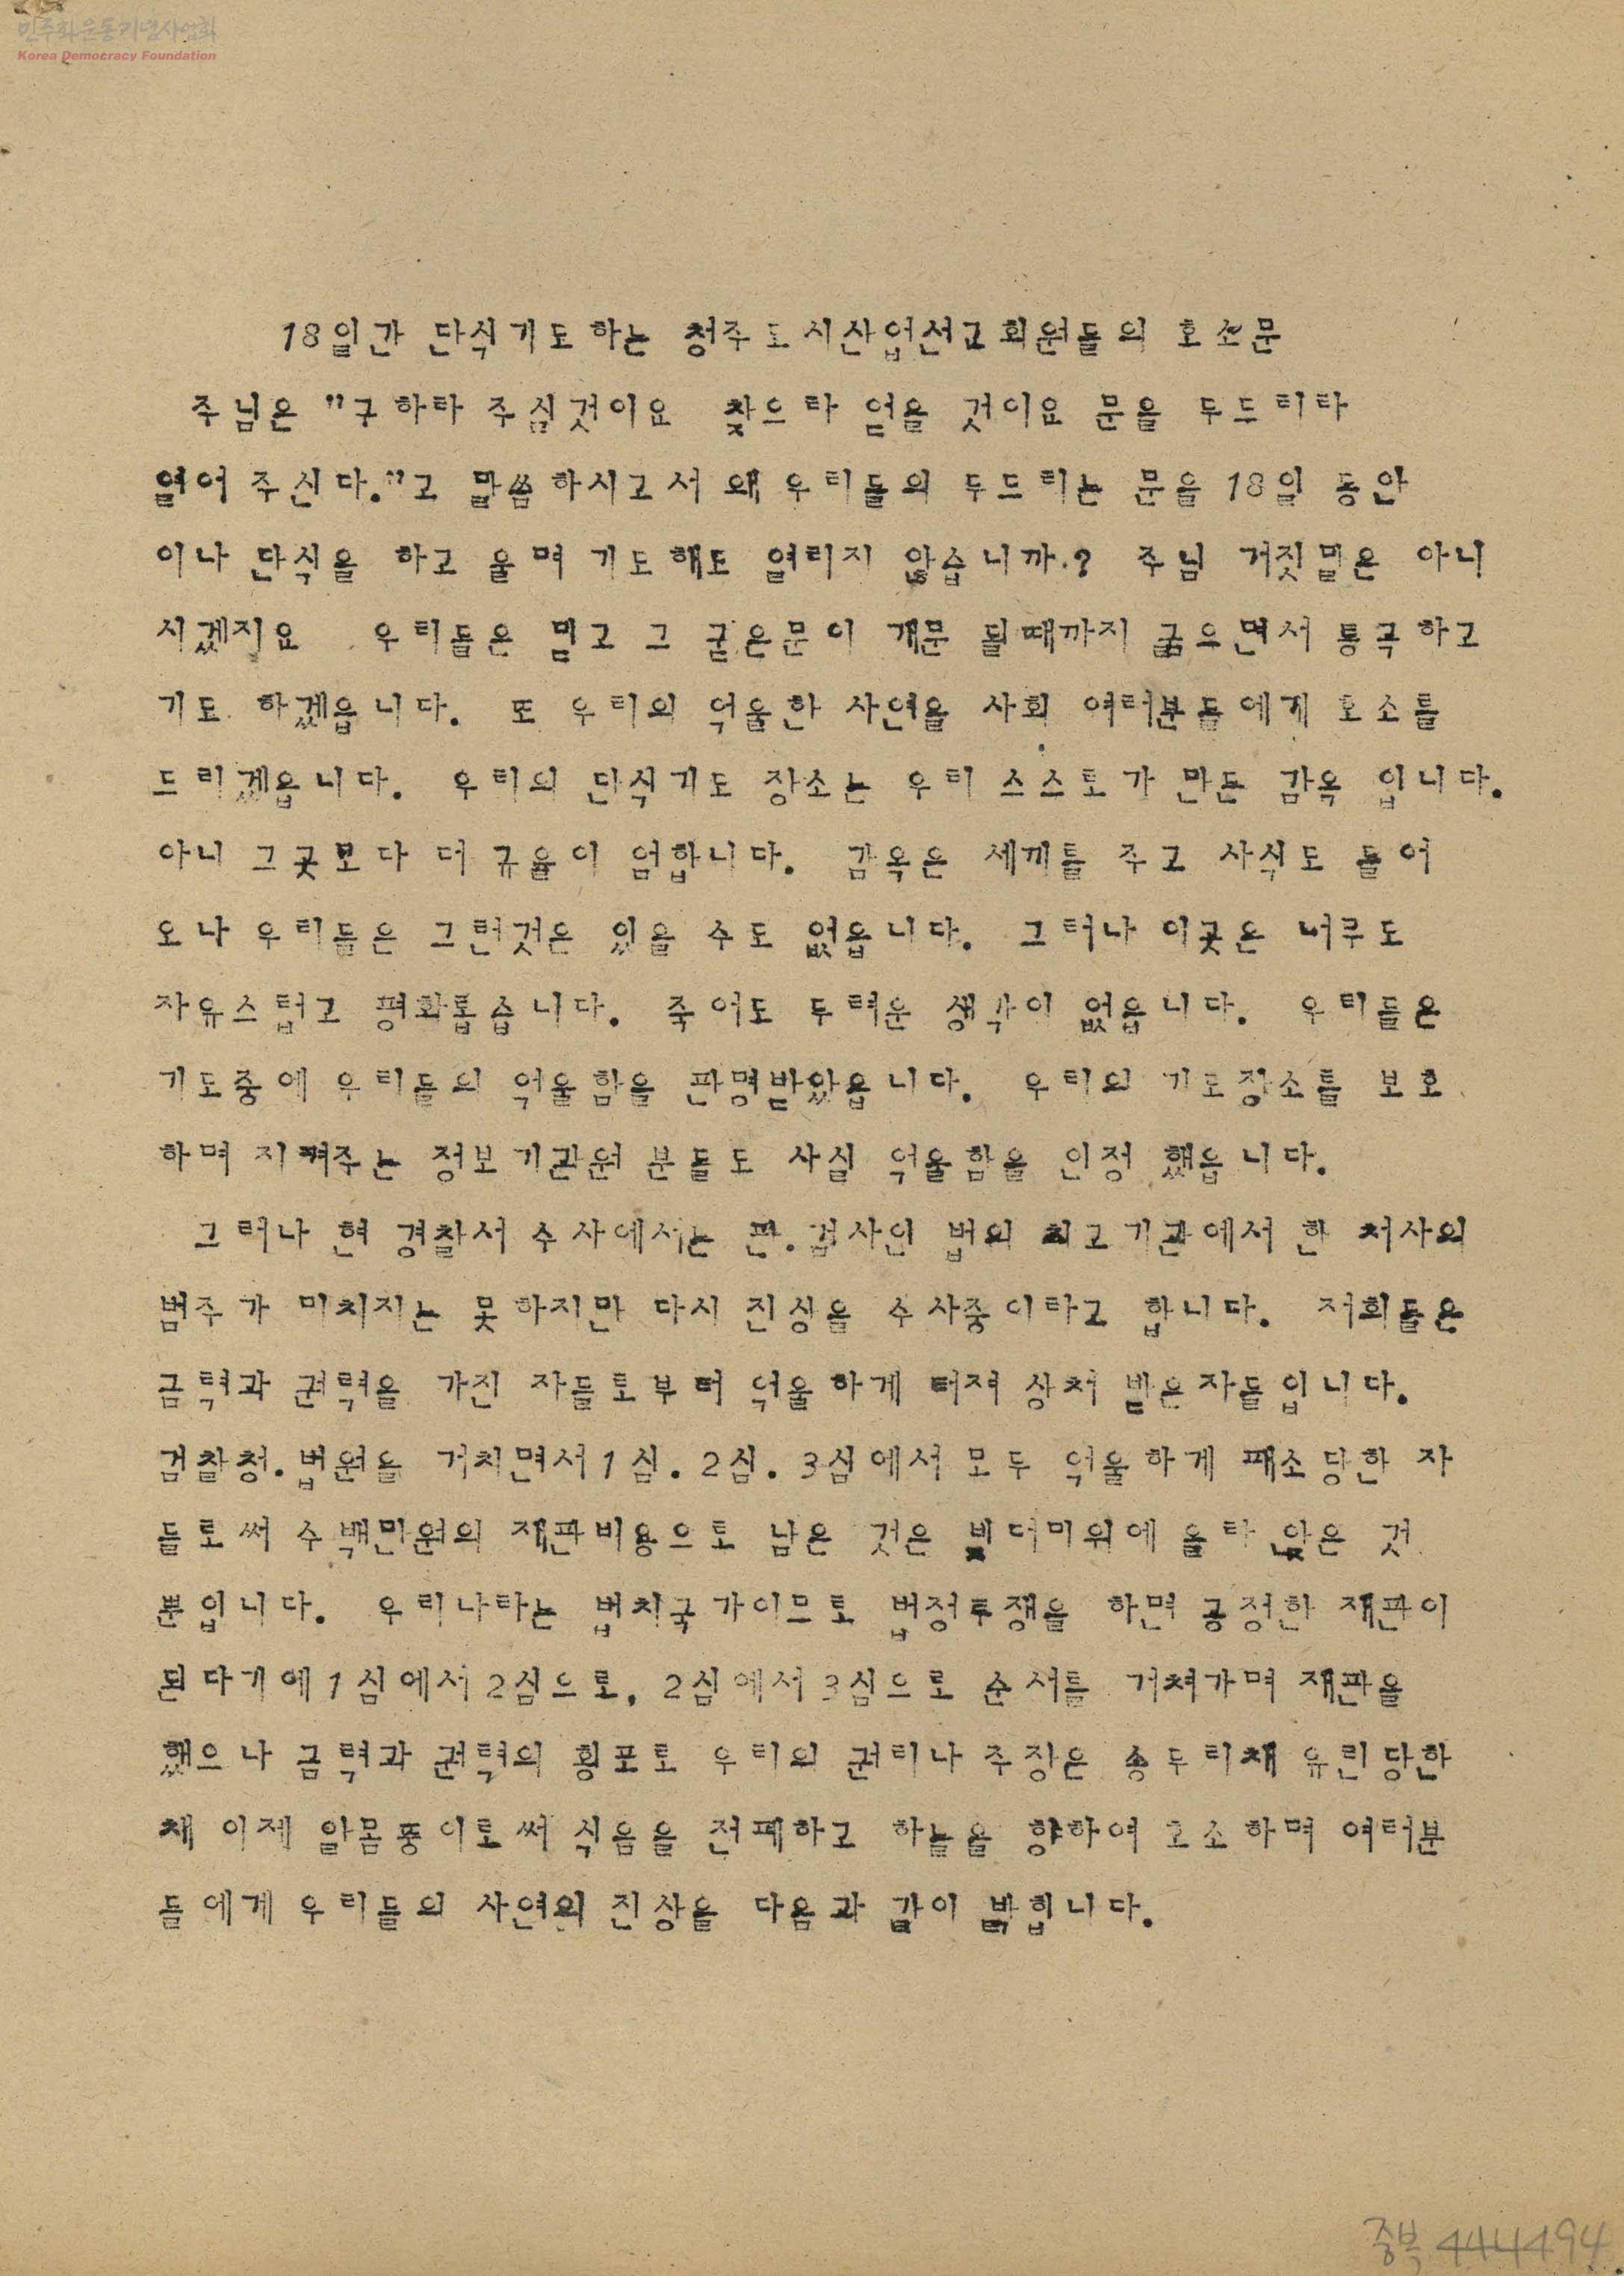 민주화운동기념사업회
Korea Democracy Foundation
18일간 단식기도하는 청주도시산업선교회원들의 호소문
주님은 "구하라 주실것이요 찾으라 얻을 것이요 문을 두드리라
열어 주신다."고 말씀하시고서 왜 우리들의 두드리는 문을 18일 동안
이나 단식을 하고 울며 기도해도 열리지 않습니까.? 주님 거짓말은 아니
시겠지요 우리들은 믿고 그 굳은문이 개문 될때까지 굶으면서 통곡하고
기도 하겠읍니다. 또 우리의 억울한 사연을 사회 여러분들에게 호소를
드리겠읍니다. 우리의 단식기도 장소는 우리 스스로가 만든 감옥 입니다.
아니 그곳보다 더 규율이 엄합니다. 감옥은 세끼를 주고 사식도 들어
오나 우리들은 그런것은 있을 수도 없읍니다. 그러나 이곳은 너무도
자유스럽고 평화롭습니다. 죽어도 두려운 생각이 없읍니다. 우리들은
기도중에 우리들의 억울함을 판명받았읍니다. 우리의 기도장소를 보호
하며 지켜주는 정보기관원 분들도 사실 억울함을 인정 했읍니다.
그러나 현 경찰서 수사에서는 판.검사인 법의 최고기관에서 한 처사의
범주가 미치지는 못하지만 다시 진상을 수사중이라고 합니다. 저희들은
금력과 권력을 가진 자들로부터 억울하게 터져 상처 받은자들입니다.
검찰청.법원을 거치면서 1심. 2심. 3심에서 모두 억울하게 패소당한 자
들로써 수백만원의 재판비용으로 남은 것은 빚더미위에 올라 앉은 것
뿐입니다. 우리나라는 법치국가이므로 법정투쟁을 하면 공정한 재판이
된다기에 1심에서 2심으로, 2심에서 3심으로 순서를 거쳐가며 재판을
했으나 금력과 권력의 횡포로 우리의 권리나 주장은 송두리채 유린당한
채 이제 알몸뚱이로써 식음을 전폐하고 하늘을 향하여 고소하며 여러분
들에게 우리들의 사연의 진상을 다음과 같이 밝힙니다.
중복 444494